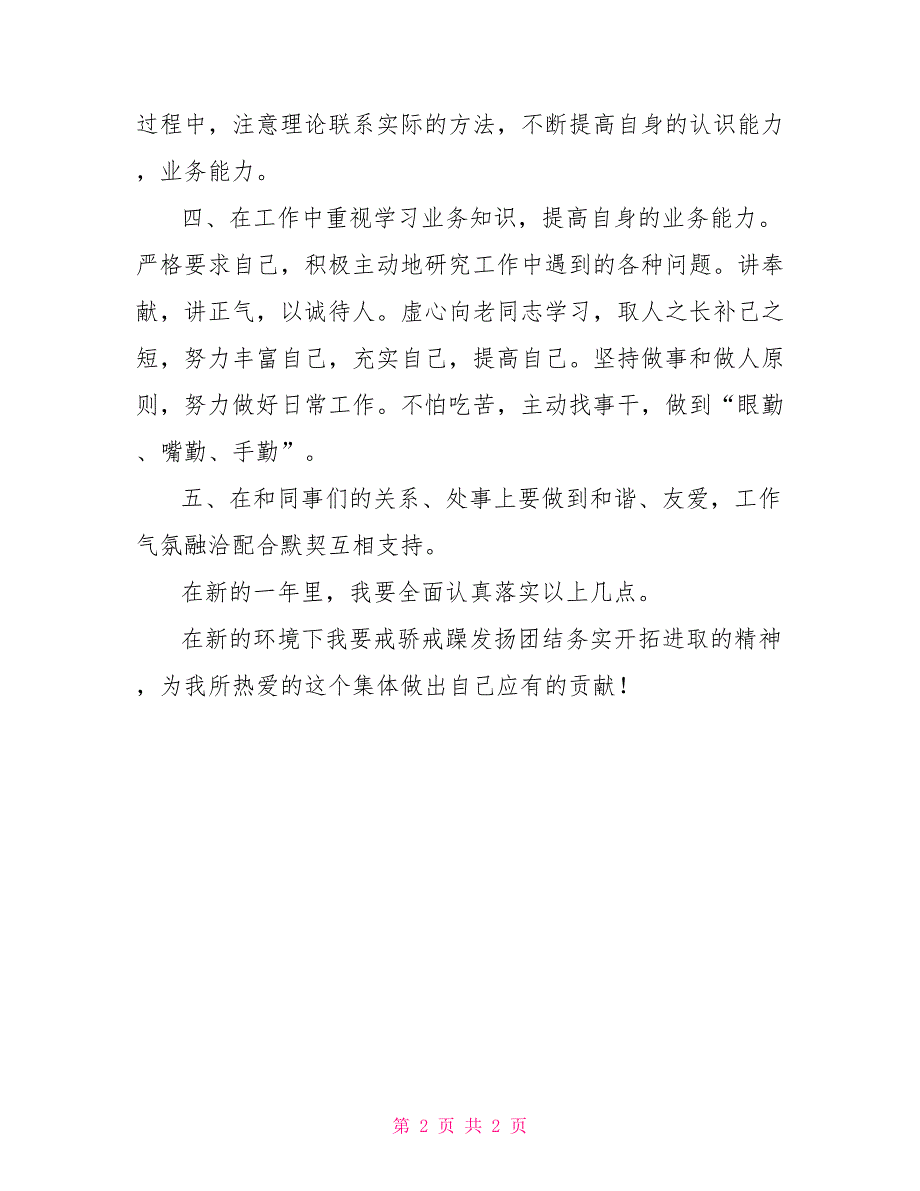 过程中，注意理论联系实际的方法，不断提高自身的认识能力
，业务能力。
四、在工作中重视学习业务知识，提高自身的业务能力。
严格要求自己，积极主动地研究工作中遇到的各种问题。讲奉
献，讲正气，以诚待人。虚心向老同志学习，取人之长补己之
短，努力丰富自己，充实自己，提高自己。坚持做事和做人原
则，努力做好日常工作。不怕吃苦，主动找事干，做到“眼勤
、嘴勤、手勤”。
五、在和同事们的关系、处事上要做到和谐、友爱，工作
气氛融洽配合默契互相支持。
在新的一年里，我要全面认真落实以上几点。
在新的环境下我要戒骄戒躁发扬团结务实开拓进取的精神
，为我所热爱的这个集体做出自己应有的贡献！
第 2 页 共 2 页